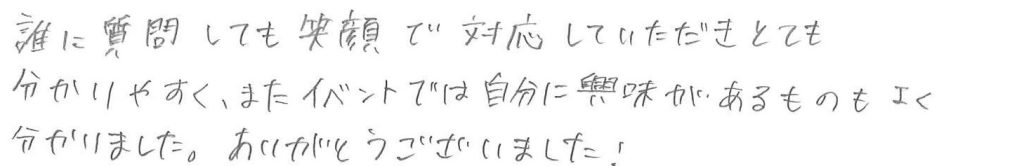 誰に質問しても笑顔で対応していただきとても
分かりやすく、またイベントでは自分に興味があるものもよく
分かりました。ありがとうございました!